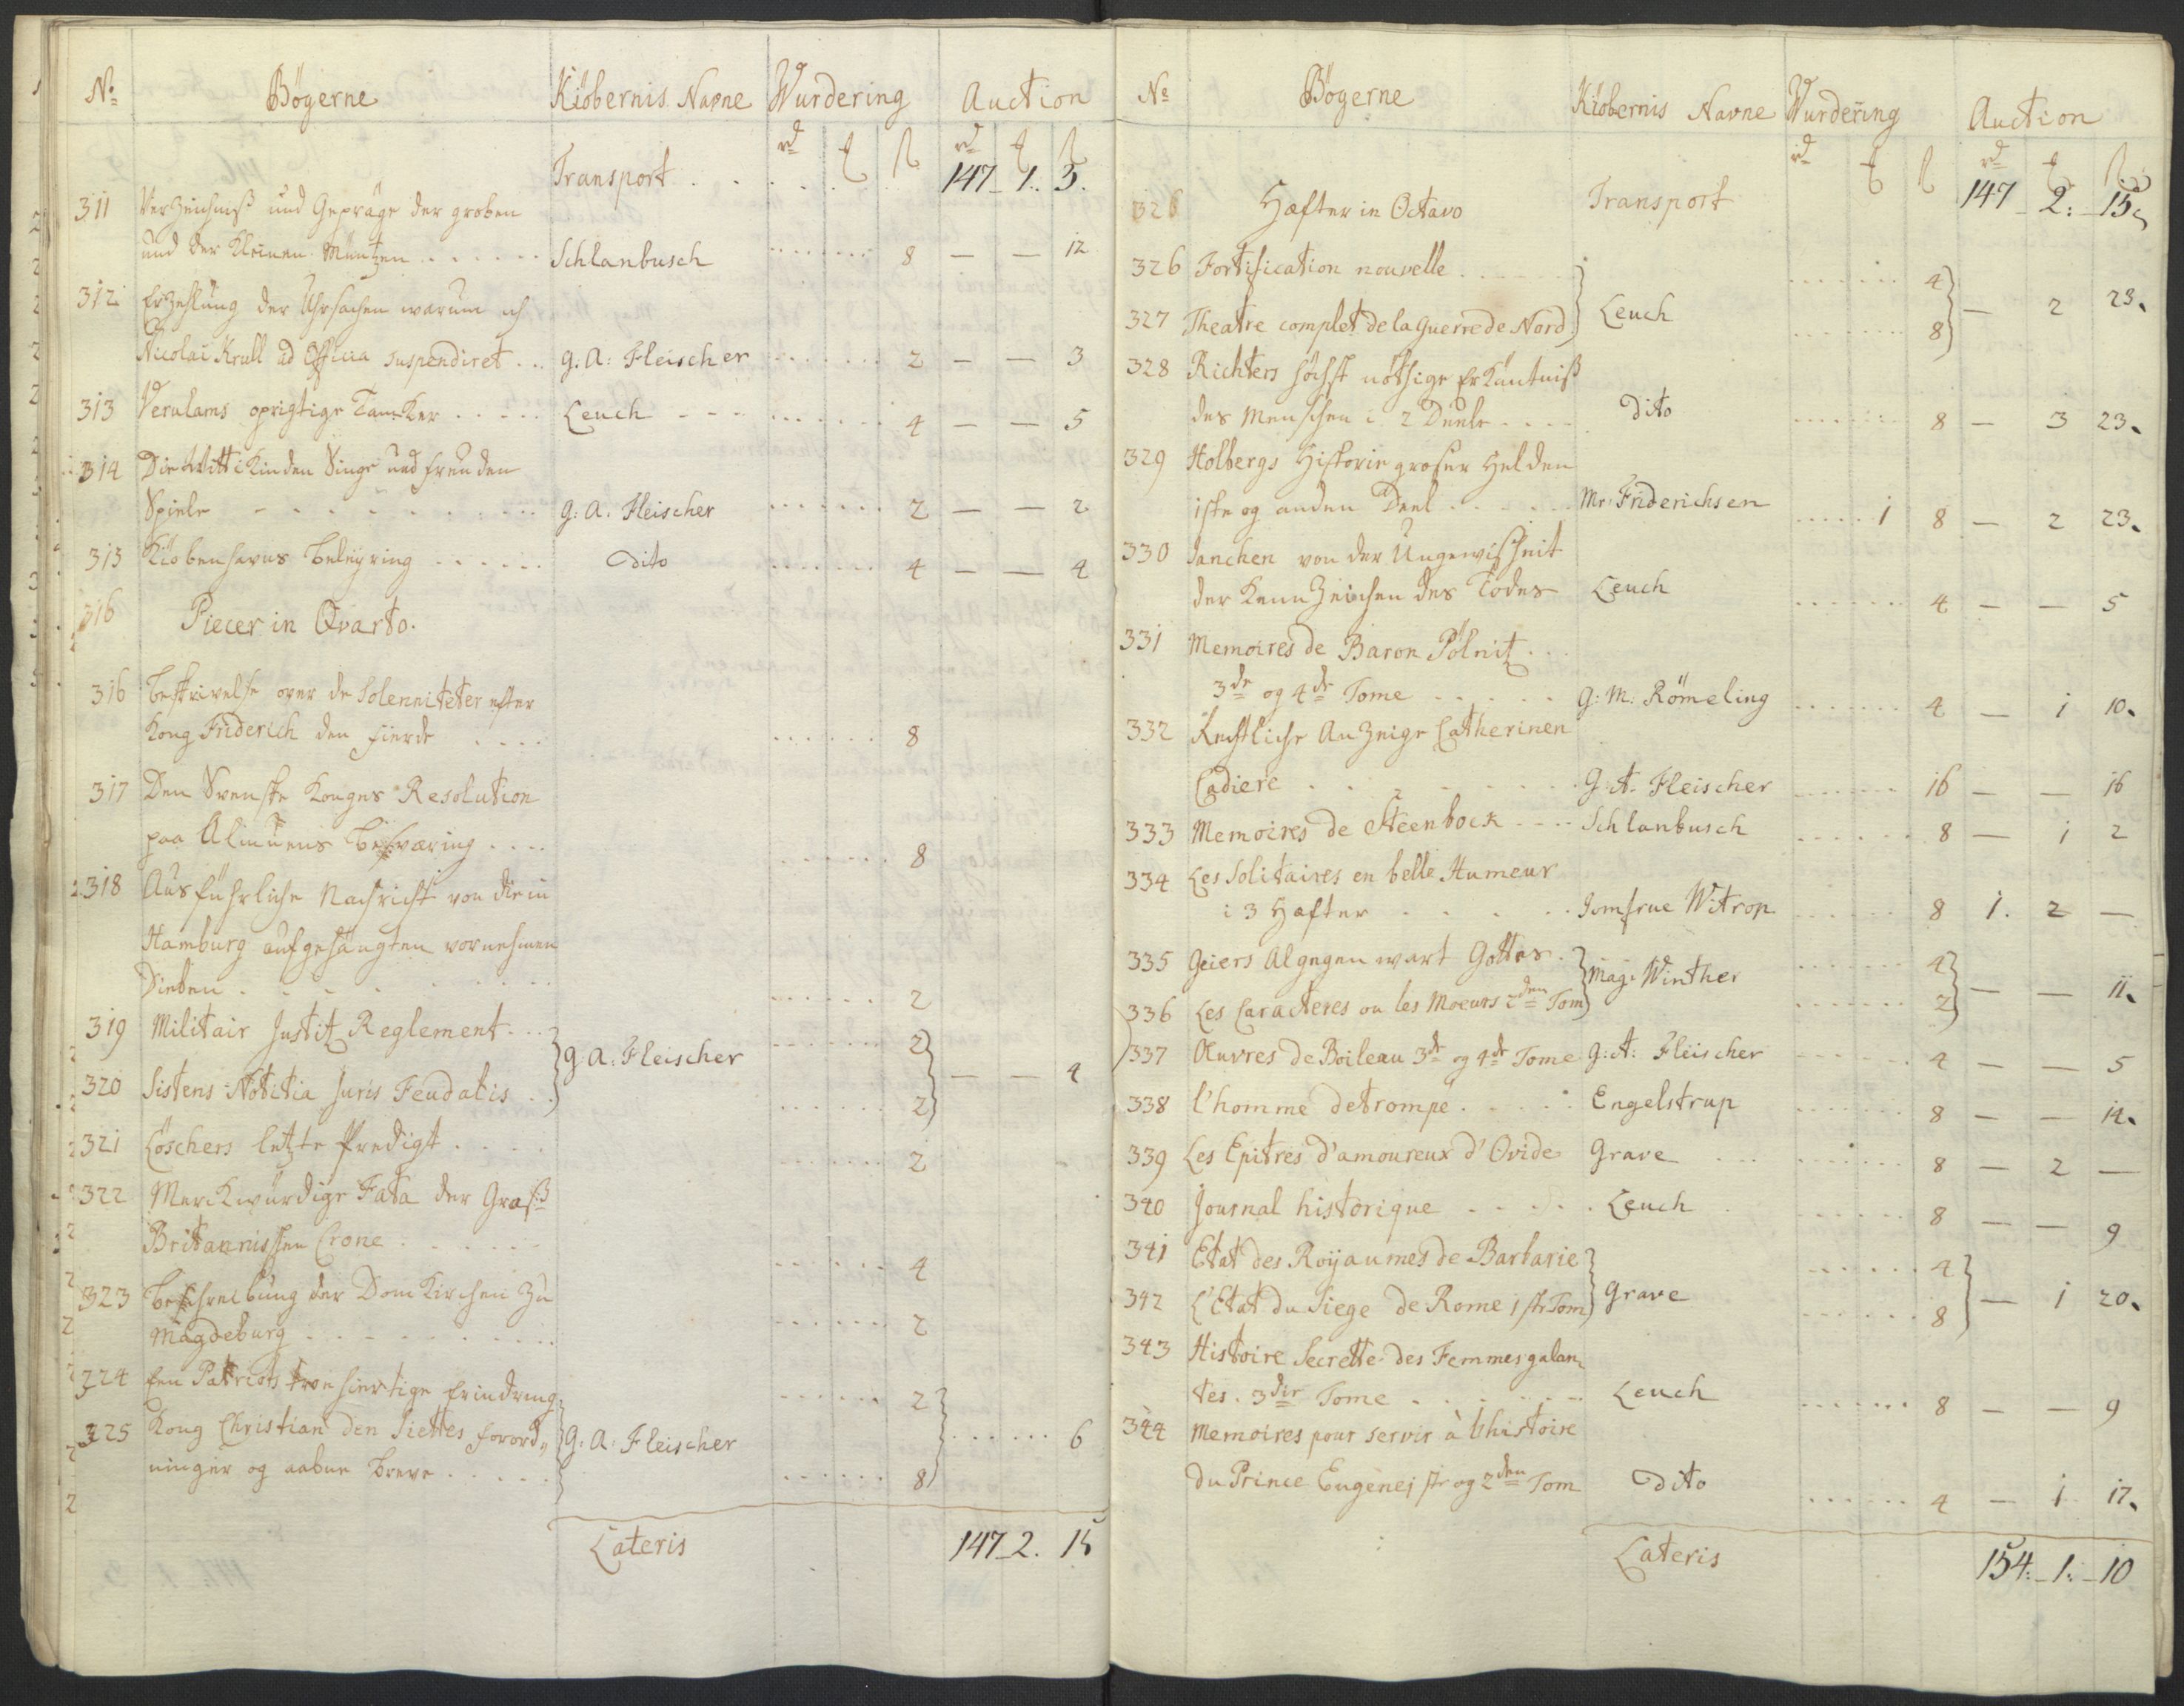 No Bögerne Kiöbernis Navne Wurdering Auction
rd rd
Transport . . . . . 147 - 1. 3.
311 Verzeichniß und Gepräge der groben
und der Kleinen Müntzen . . . . . . Schlanbusch 8 — — 12
312 Erzehlung der Uhrsachen warum ich
Nicolai Krull ad Officia suspendiret . . . G. A: Fleischer 2 — — 3
313 Verulams oprigtige Tanker . . . . . Leuch 4 — — 5
314 Die Wittikinden Singe und freuden
Spiele G: A: Fleischer 2 — — 2
315 Kiöbenhavns beleyring . . . . . . Dito 4 — — 4
316 Piecer in Qvarto.
316 beskrivelse over de Solenniteter efter
Kong Friderich den fierde . . . . 8
317 Den Svenske Konges Resolution
paa Almuens besværing . . . . 8
318 Ausführliche Nachricht von die in
Hamburg aufgehängten vornehmen
Dieben . . . . . . 2
319 Militair Justitz Reglement . . . 2
G. A: Fleischer — — 4
320 Sistens Notitia Juris Feudatis . . 2
321 Löschers letzte Predigt . . . . 2
322 Merckwürdige Fata der Groß
Britannischen Crone . . . . . . 4
323 beschreibung der Dom Kirchen zu
Magdeburg . . . . . . 2
324 Een Patriots troe hiertige Erindring 2
325 Kong Christian den Siettes forord,, G: A: Fleischer 6
ninger og aabne breve . . . . . 8
Lateris 147 - 2. 15
No Bögerne Kiöbernis Navne Wurdering Auction
rd rd
326 Hæfter in Octavo Transport 147 - 2: - 15
326 Fortification nouvelle . . . . . 4
Leuch — 2 23.
327 Theatre complet de la Guerre de Nord 8
328 Richters höchst nöthige Erkäntniß
des Menschen i 2 Deele . . . . Dito 8 — 3 23.
329 Holbergs Historie großer Helden
1ste og anden Deel . . . . . Mr. Friderichsen 1 8 — 2 23.
330 Janchen von der Ungewißheit
der Kennzeichen des Todes Leuch 4 — — 5
331 Memoires de Baron Pölnitz . . .
3de og 4de Tome . . . . . G: M: Römeling 4 — 1 10.
332 Rechtliche Anzeige Catherinen
Cadiere . . . . . . . . G: A. Fleischer 16 — — 16
333 Memoires de Steenbock . . . . Schlanbusch 8 — 1 2
334 Les Solitaires en belle Humeur
i 3 Hæfter . . . . . Jomfrue Witrop 8 1. 2 —
335 Geiers Algegenwart Gottes . 4
Mag: Winther — — 11.
336 Les Caracteres ou les Moeurs 2den Tom 2
337 Œuvres de Boileau 3de og 4de Tome G: A: Fleischer 4 — — 5
338 l'homme detrompé . . . . . Engelstrup 8 — — 14.
339 Les Epitres d'amoureux d'Ovide Grave 8 — 2 —
340 Journal historique . . . . . Leuch 8 — — 9
341 Etat des Royaumes de Barbarie 4
Grave — 1 20.
342 L'Etat du Siege de Rome 1ste Tom 8
343 Histoire Secrette des Femmes galan,,
tes. 3die Tome . . . . . . Leuch 8 — — 9
344 Memoires pour servir à l'histoire
du Prince Eugene 1ste og 2den Tom Dito 4 — 1 17.
Lateris 154: - 1: - 10